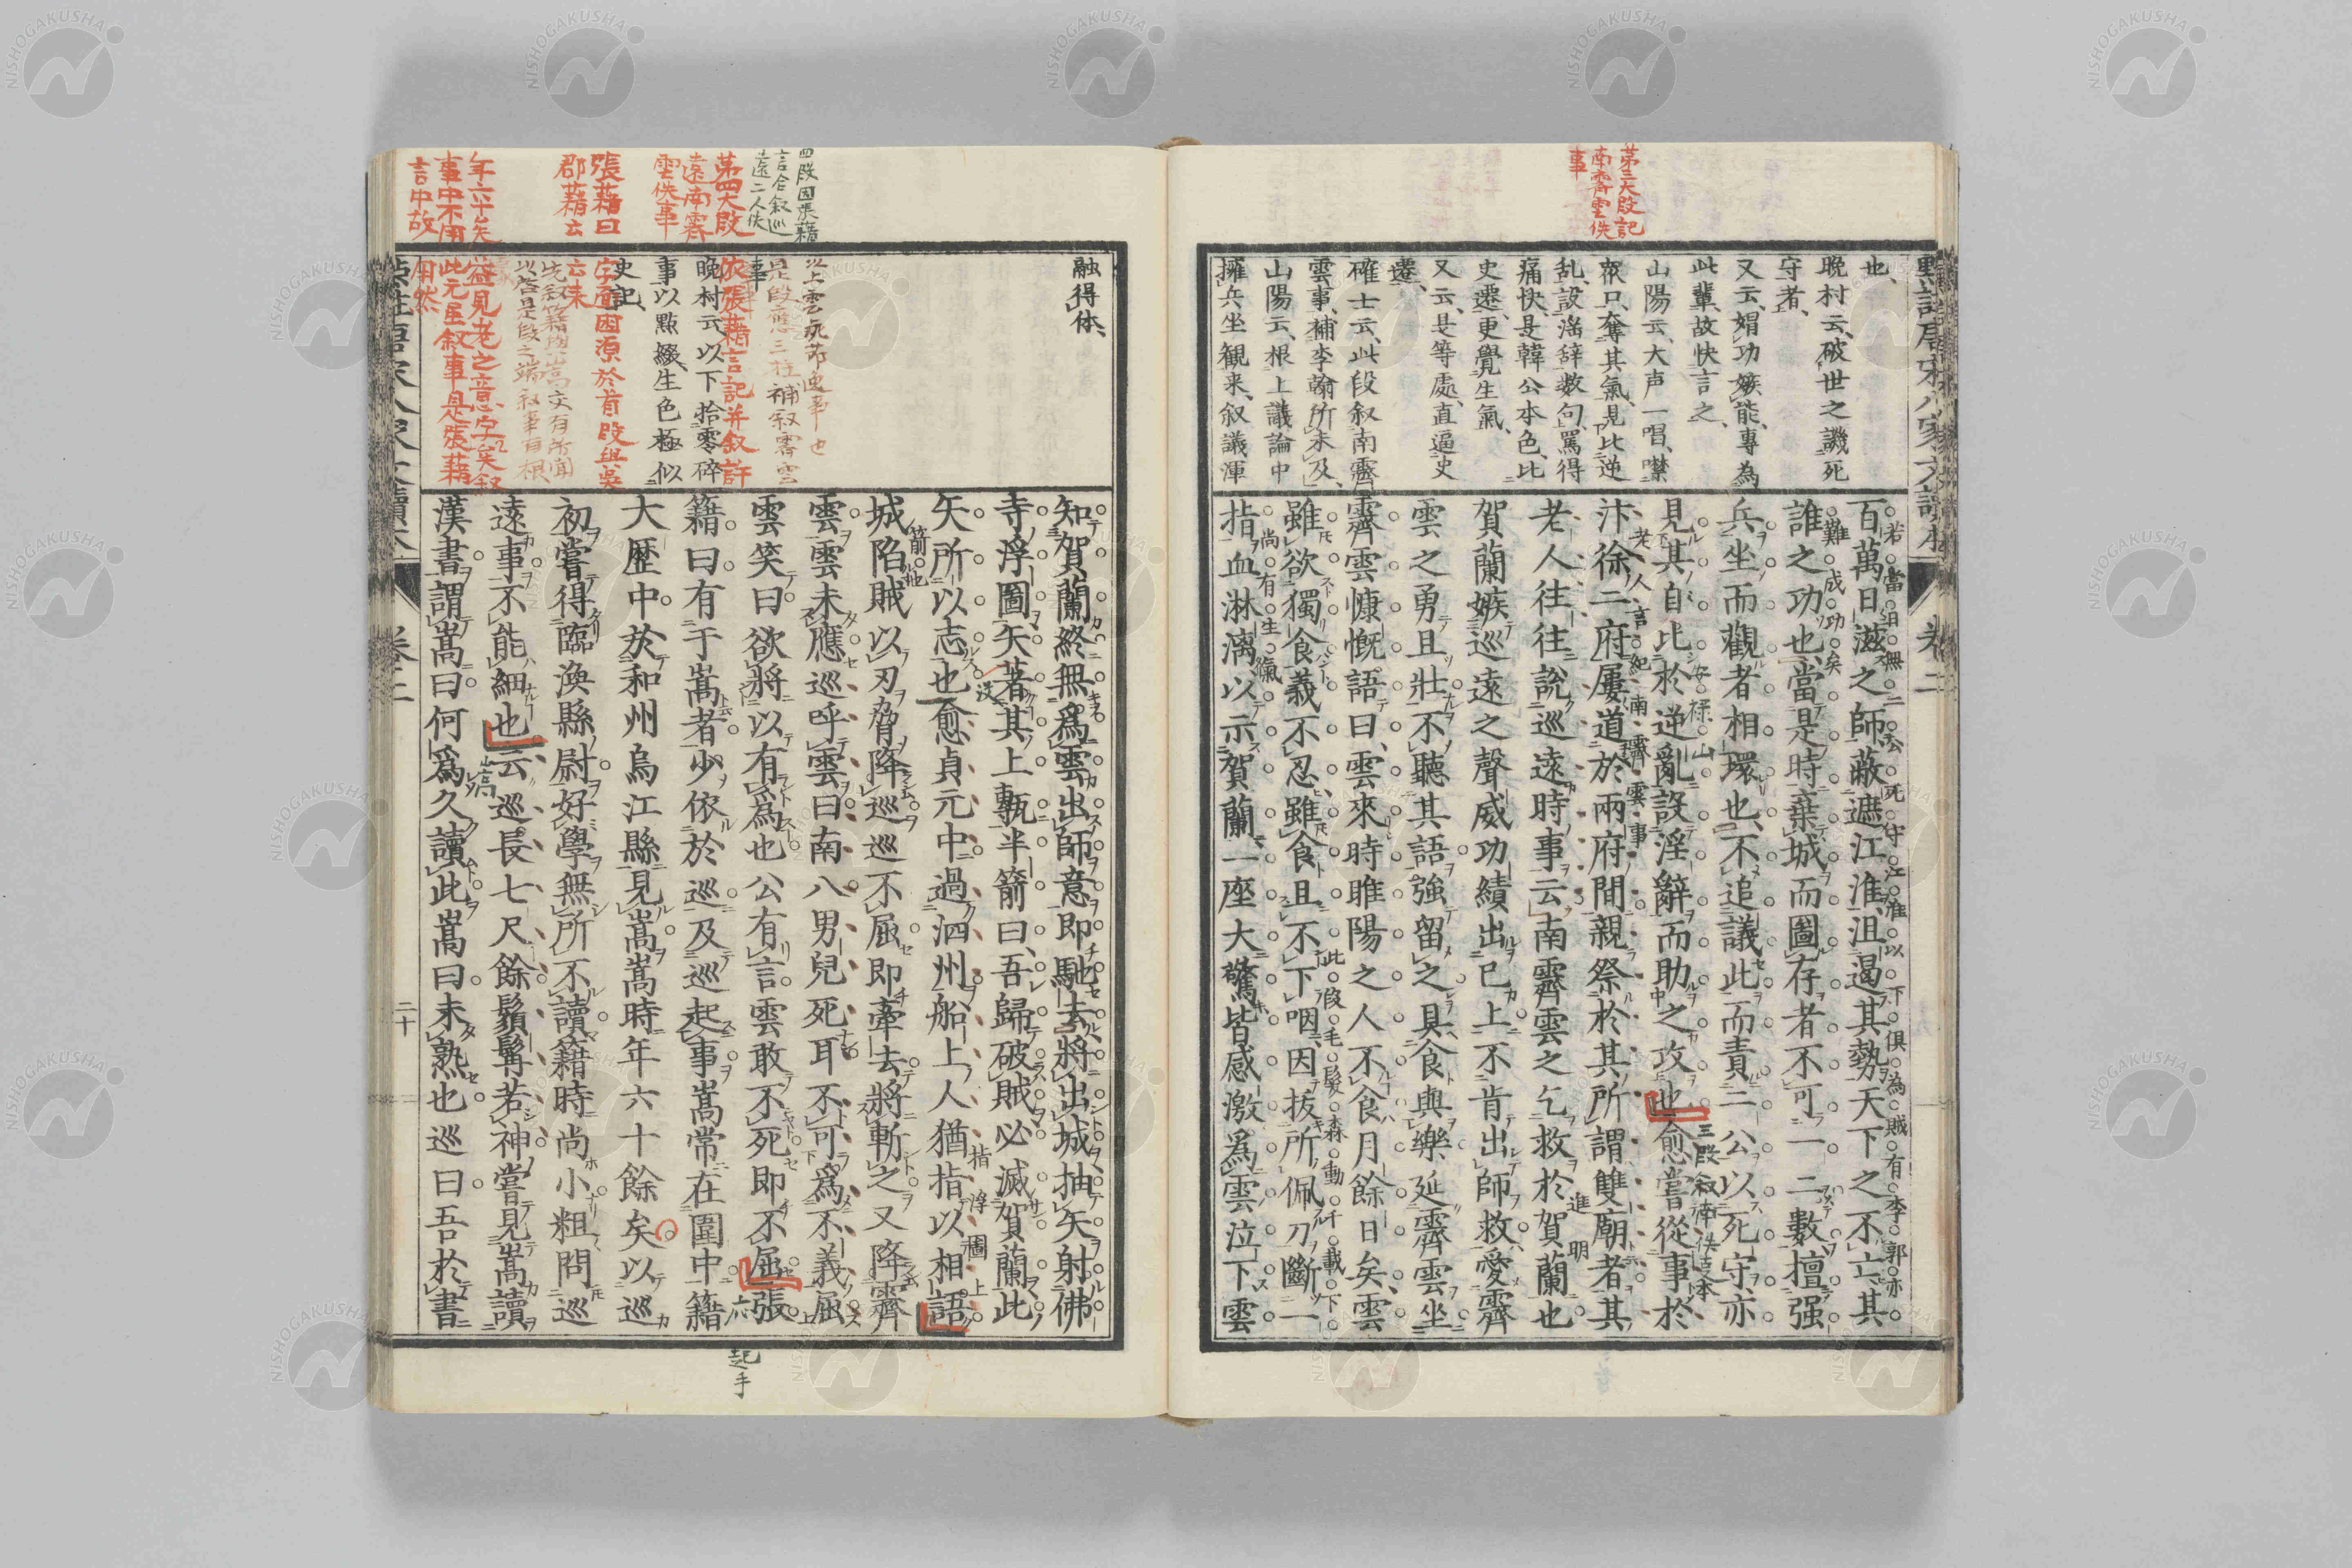 第三大段記
南霽雲佚
事
也、
晩村云、破世之譏死
守者、
又云、媢功嫉能、專為
此輩、故快言之、
山陽云、大声一唱、噤
衆口、奪其氣、見比逆
亂、設滛辞数句、罵得
痛快、是韓公本色、比
史遷、更覺生氣、
又云、是等處、直逼史
遷、
確士云、此段叙南霽
雲事、補李翰所未及、
山陽云、根上議論中
擁兵坐観来、叙議渾
百萬日滋之師、蔽遮江淮、沮遏其勢、天下之不亡、其
誰之功也、當是時、棄城而圖存者、不可一二數、擅强
兵坐而觀者、相環也、不追議此、而責二公以死守、亦
見其自比於逆亂、設淫辭而助之攻也、愈嘗從事於
汴徐二府、屢道於兩府間、親祭於其所謂雙廟者、其
老人往往說巡遠時事云、南霽雲之乞救於賀蘭也
賀蘭嫉巡遠之聲威功績出己上、不肯出師救、愛霽
雲之勇且壯、不聽其語、強留之、具食與樂、延霽雲坐
霽雲慷慨語曰、雲來時、睢陽之人不食月餘日矣、雲
雖欲獨食、義不忍、雖食且不下咽、因拔所佩刀斷一
指、血淋漓、以示賀蘭、一座大驚、皆感激爲雲泣下、雲
四段因張籍
言合叙巡
遠二人佚
第四大段
遠南霽
雲佚事
張籍曰
郡藉云
年六十矣
事中不用
言中故
融得体、
以上雲死節史事也
是段應三柱補叙霽雲
事
依張藉言記并叙許
晩村云、以下拾零碎
事、以點綴、生色極似
史記、
知賀蘭終無爲雲出師意、即馳去、將出城、抽矢射佛
寺浮圖、矢著其上甎半箭、曰、吾歸破賊、必滅賀蘭、此
矢所以志也、愈貞元中過泗州、船上人猶指以相語
城陷、賊以刃脅降巡、巡不屈、即牽去、將斬之、又降霽
雲、雲未應、巡呼雲曰、南八、男兒死耳、不可爲不義屈
雲笑曰、欲將以有爲也、公有言、雲敢不死、即不屈、張
籍曰、有于嵩者、少依於巡、及巡起事、嵩常在圍中、籍
大歷中、於和州烏江縣見嵩、嵩時年六十餘矣、以巡
初嘗得臨渙縣尉、好學、無所不讀、籍時尚小、粗問巡
遠事、不能細也、云、巡長七尺餘、鬚髯若神、嘗見嵩讀
漢書、謂嵩曰、何爲久讀此、嵩曰、未熟也、巡曰、吾於書
起手
卷二
二十
NISHOGAKUSHA